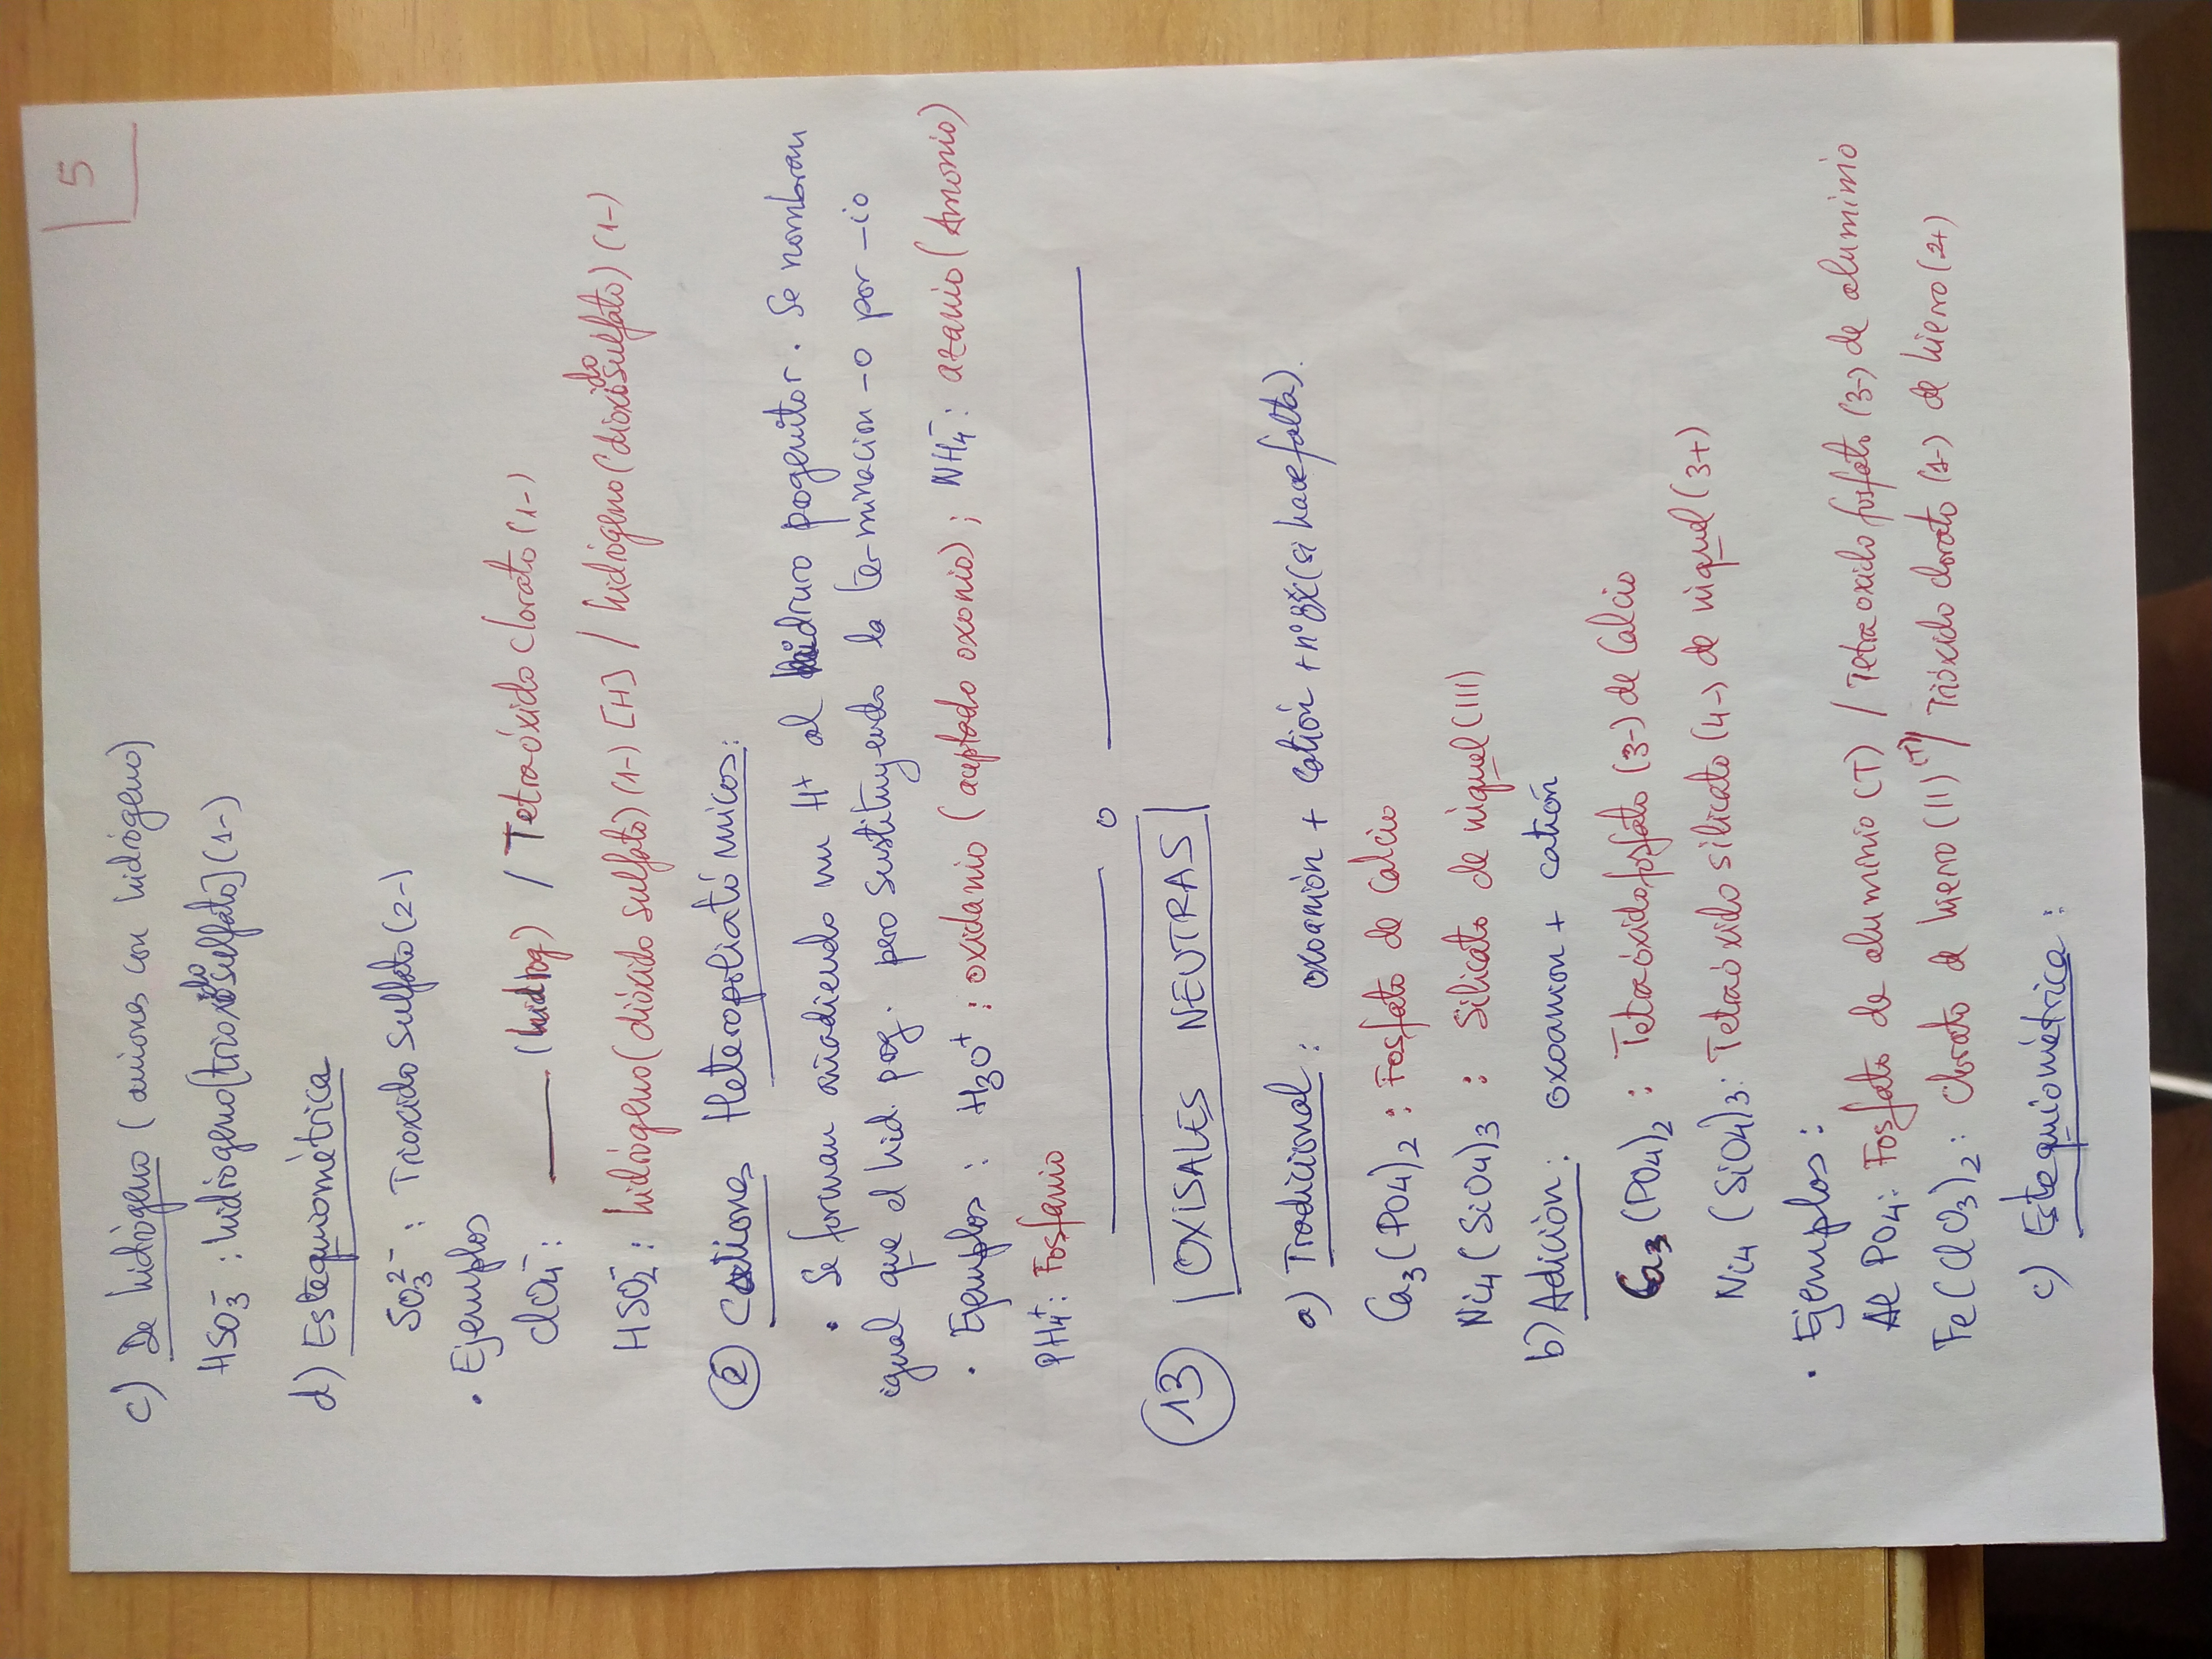 5
c) De hidrógeno (aniones con hidrógeno)
HSO₃⁻ : hidrogeno[trioxidosulfato](1-)
d) Estequiométrica
SO₃²⁻ : Trioxido sulfato (2-)
• Ejemplos
ClO₄⁻ : —— (hidrog) / Tetraóxido clorato (1-)
HSO₂⁻ : hidrógeno(dióxido sulfato) (1-) [H] / hidrógeno(dioxidosulfato) (1-)
② Cationes Heteropoliatómicos:
• Se forman añadiendo un H⁺ al hidruro progenitor. Se nombran
igual que el hid. prog. pero sustituyendo la terminacion -o por -io
• Ejemplos : H₃O⁺ : oxidanio (aceptado oxonio) ; NH₄⁻ : azanio (Amonio)
PH₄⁺ : Fosfanio
13 OXISALES NEUTRAS
a) Tradicional : oxoanión + catión + nº ox (si hace falta).
Ca₃(PO₄)₂ : Fosfato de Calcio
Ni₄(SiO₄)₃ : Silicato de niquel (III)
b) Adición : oxoanion + catión
Ca₃(PO₄)₂ : Tetraóxidofosfato (3-) de Calcio
Ni₄(SiO₄)₃ : Tetraóxido silicato (4-) de niquel (3+)
• Ejemplos :
AlPO₄ : Fosfato de aluminio (T) / Tetraoxido fosfato (3-) de aluminio
Fe(ClO₃)₂ : Clorato de hierro (II) (T) / Trióxido clorato (1-) de hierro (2+)
c) Estequiométrica :